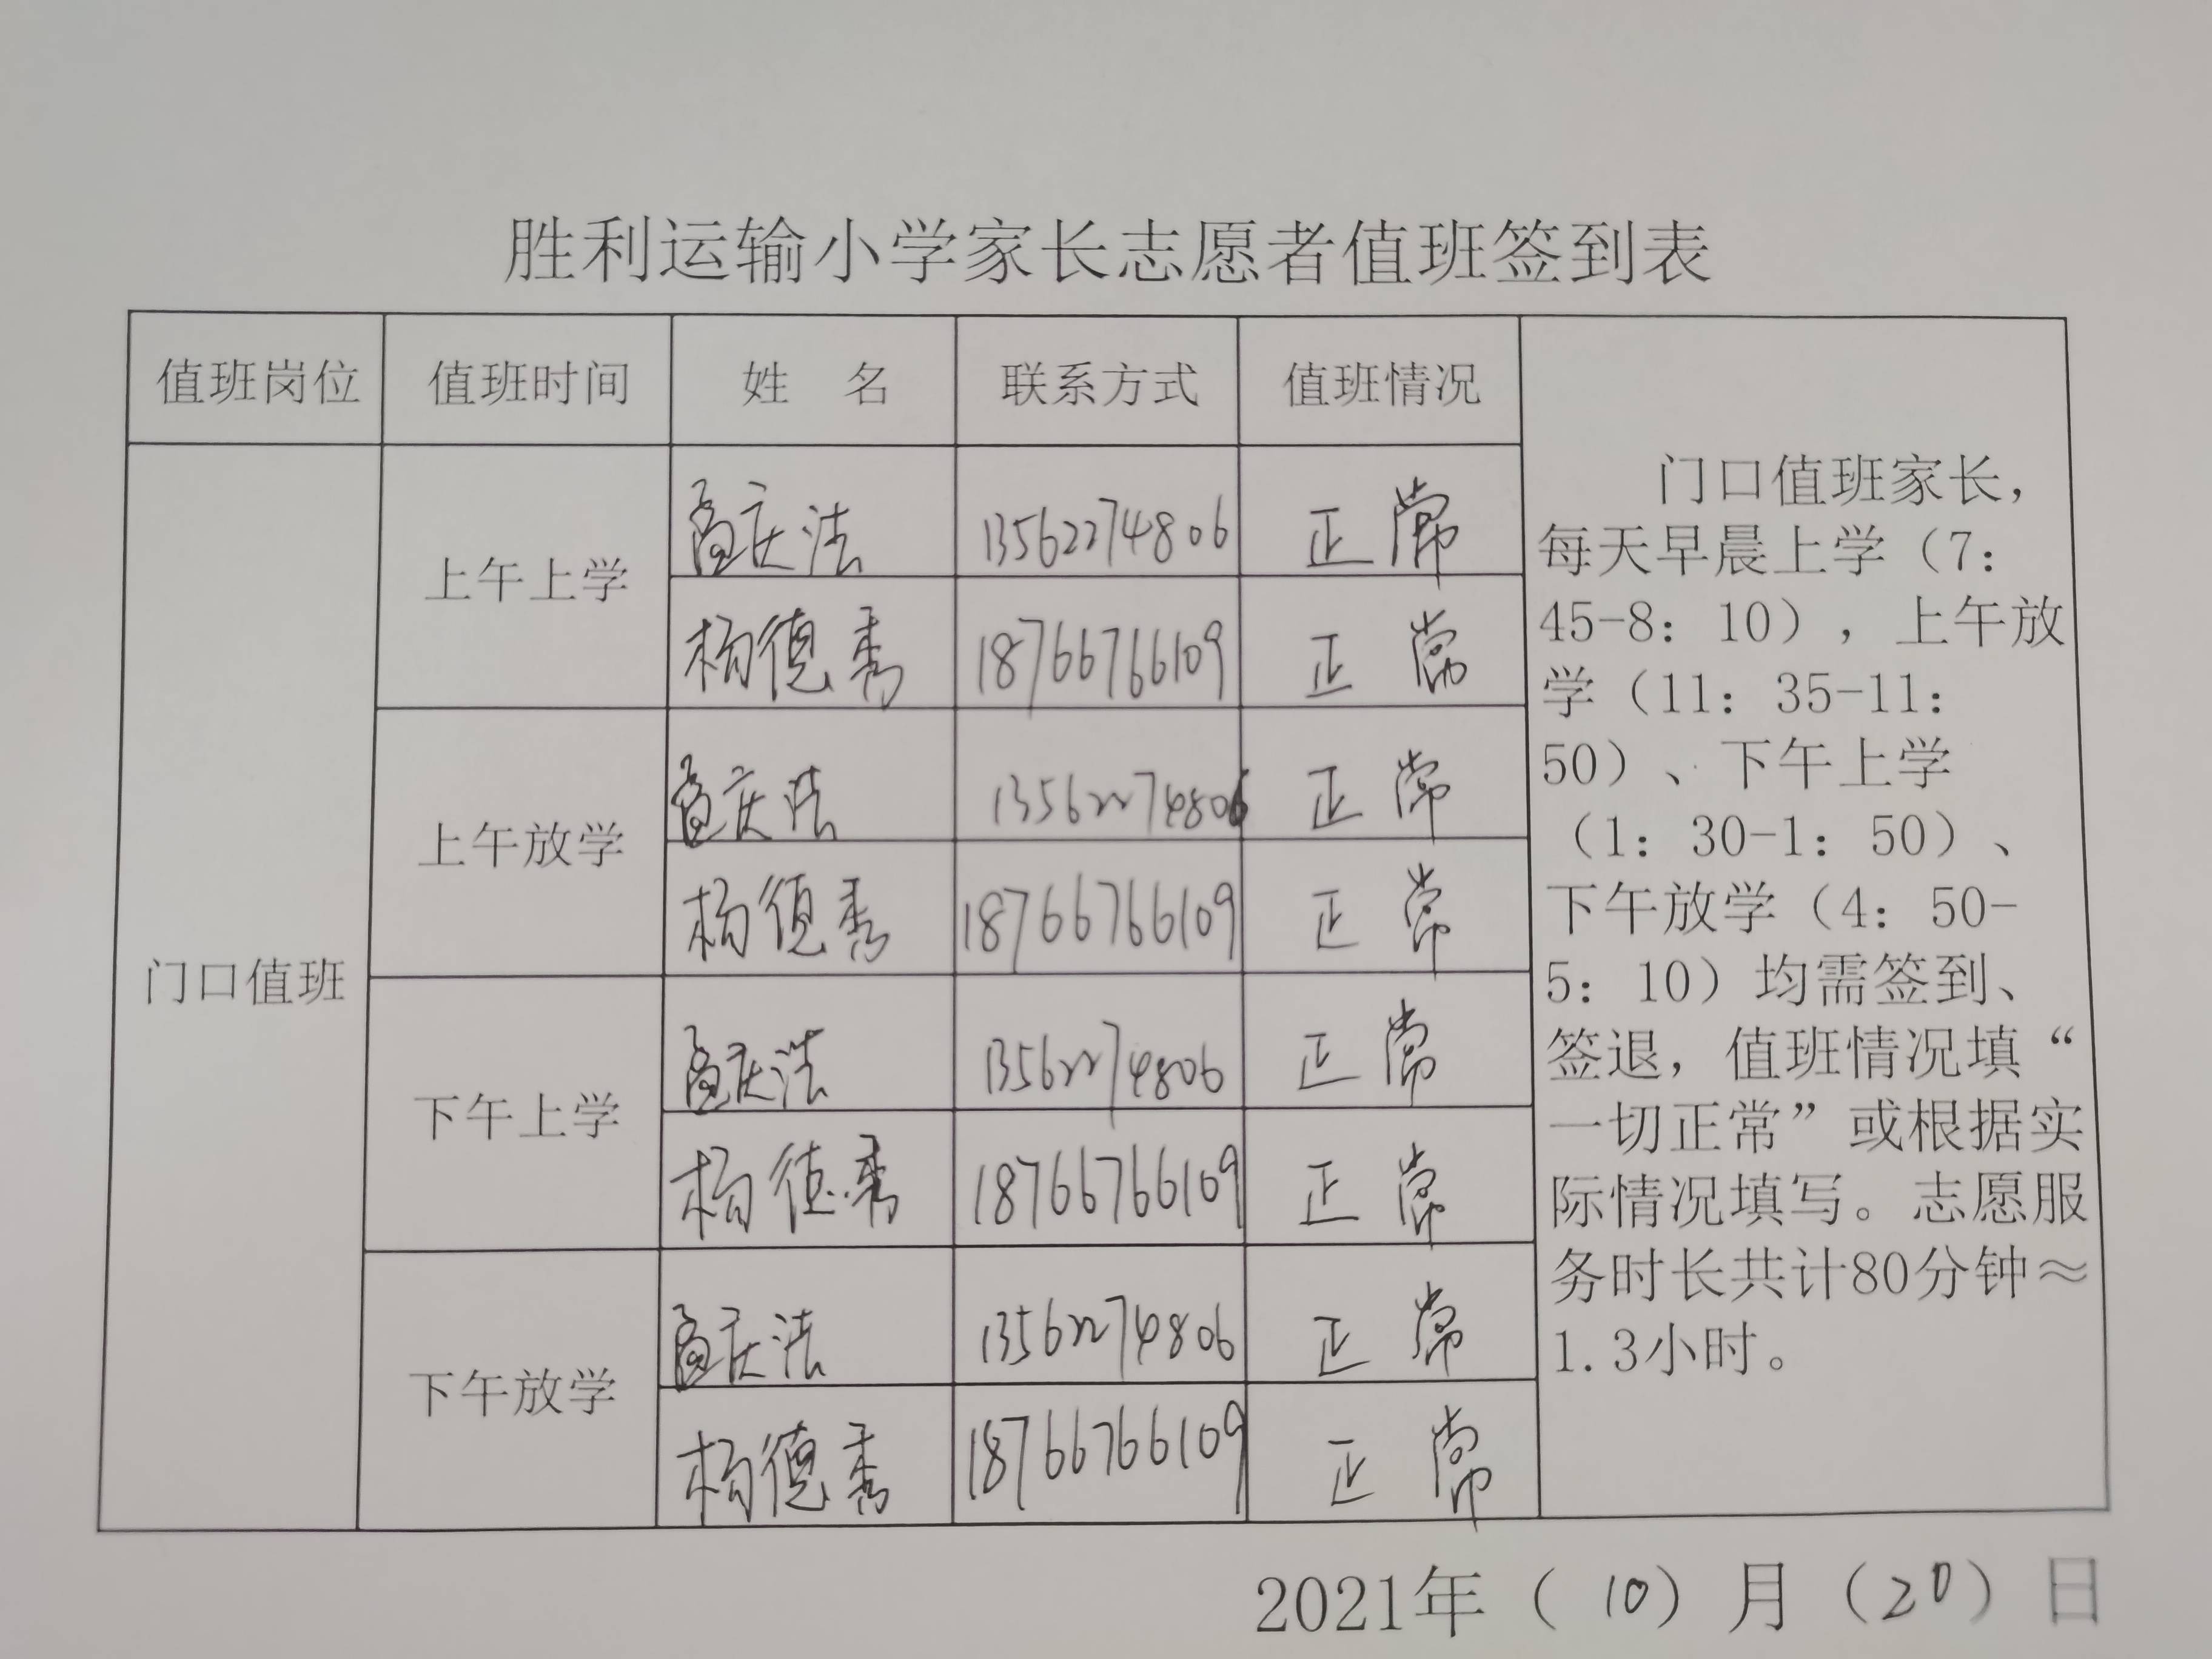 胜利运输小学家长志愿者值班签到表
值班岗位 值班时间 姓 名 联系方式 值班情况
门口值班
上午上学
庆法 13562274806 正常
杨德秀 18766766109 正常
上午放学
庆法 13562274806 正常
杨德秀 18766766109 正常
下午上学
庆法 13562274806 正常
杨德秀 18766766109 正常
下午放学
庆法 13562274806 正常
杨德秀 18766766109 正常
门口值班家长，
每天早晨上学（7：
45-8：10），上午放
学（11：35-11：
50）、下午上学
（1：30-1：50）、
下午放学（4：50-
5：10）均需签到、
签退，值班情况填“
一切正常”或根据实
际情况填写。志愿服
务时长共计80分钟≈
1.3小时。
2021年（10）月（20）日